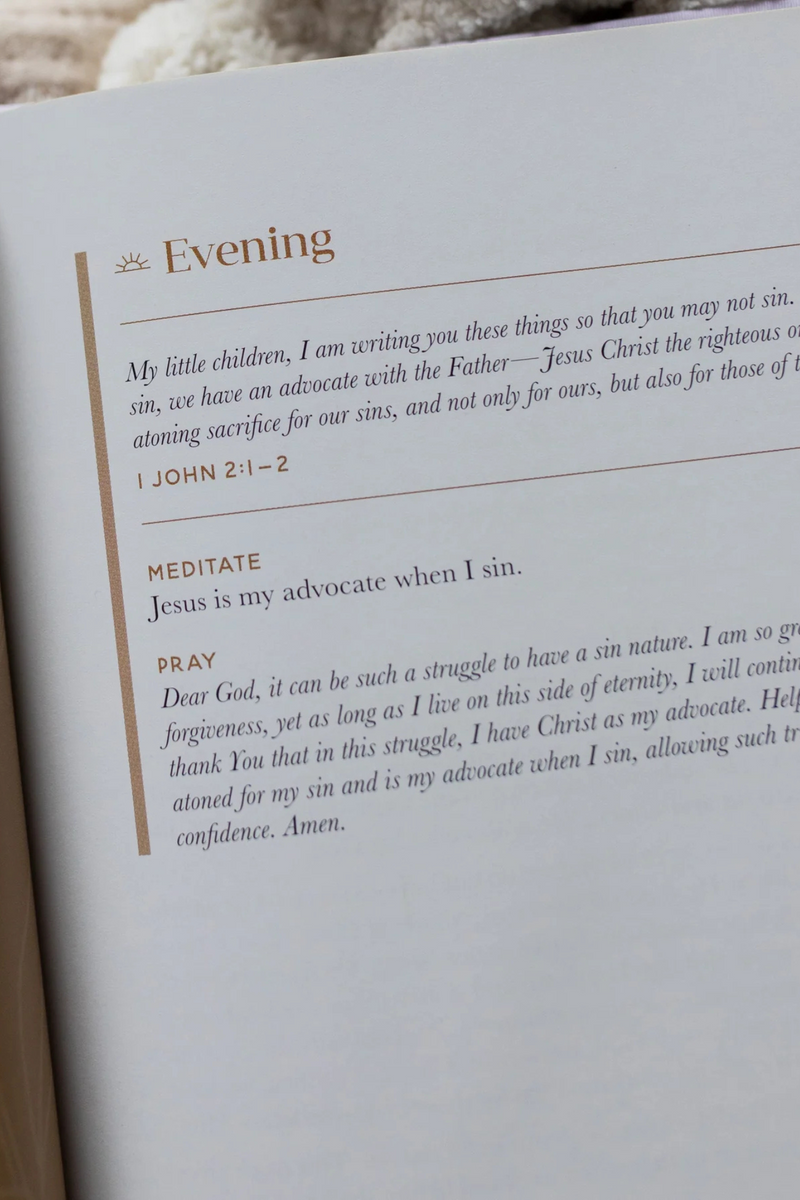 Evening
My little children, I am writing you these things so that you may not sin.
sin, we have an advocate with the Father—Jesus Christ the righteous
atoning sacrifice for our sins, and not only for ours, but also for those of
I JOHN 2:1–2
MEDITATE
Jesus is my advocate when I sin.
PRAY
Dear God, it can be such a struggle to have a sin nature. I am so
forgiveness, yet as long as I live on this side of eternity, I will
thank You that in this struggle, I have Christ as my advocate.
atoned for my sin and is my advocate when I sin, allowing such
confidence. Amen.